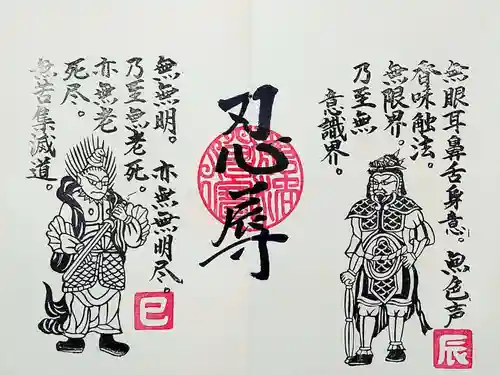 無眼耳鼻舌身意。無色声
香味触法。
無限界。
乃至無
意識界。
辰
忍辱
無無明。亦無無明尽。
乃至無老死。
亦無老
死尽。
無苦集滅道。
巳